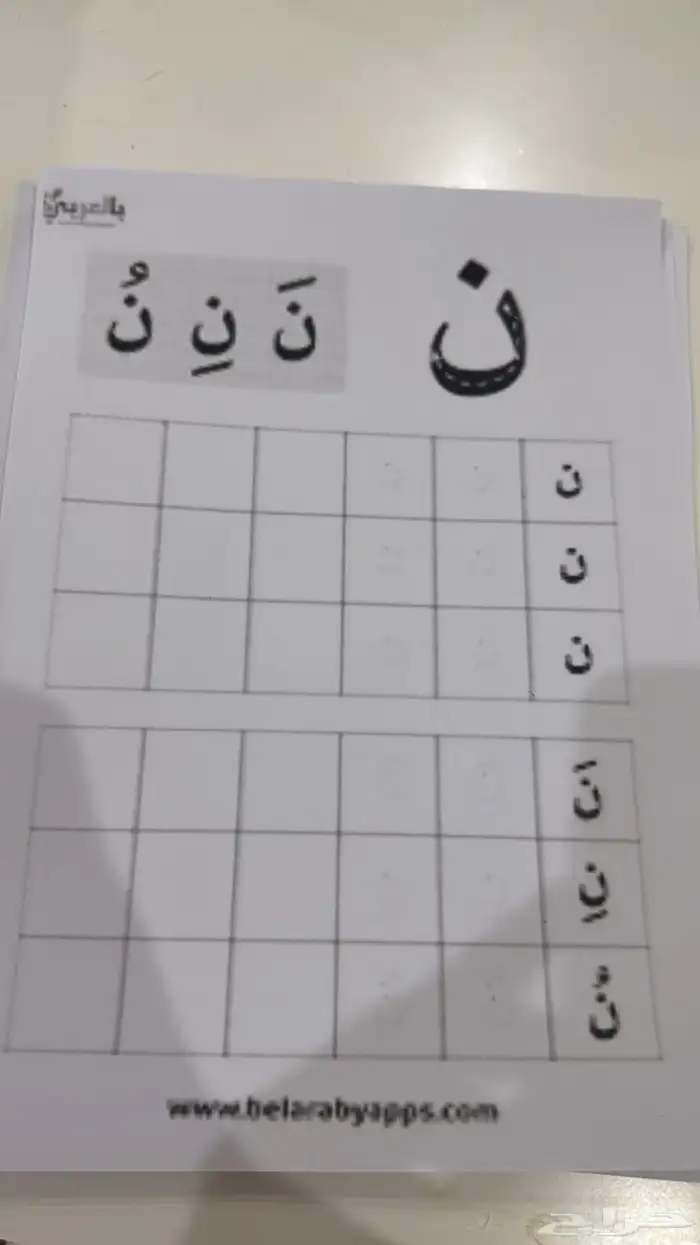 بالعربي
ن
نَ نِ نُ
ن
ن
ن
نَ
نِ
نُ
www.belarabyapps.com
حراج